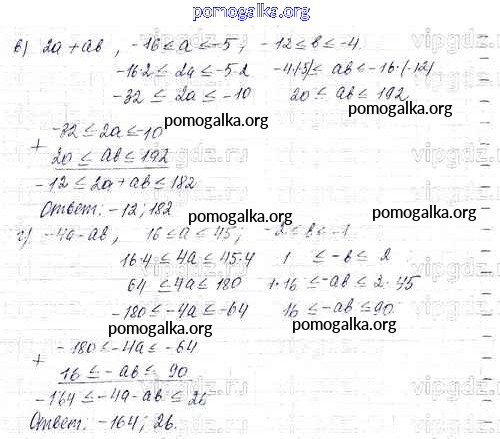 pomogalka.org
в) 2a + ab, -16 ≤ a ≤ -5; -12 ≤ b ≤ -4.
-16·2 ≤ 2a ≤ -5·2 -4·(-5) ≤ ab ≤ -16·(-12)
-32 ≤ 2a ≤ -10 20 ≤ ab ≤ 192
pomogalka.org pomogalka.org
-32 ≤ 2a ≤ -10
+
20 ≤ ab ≤ 192
vipgdz.ru
-12 ≤ 2a + ab ≤ 182
Ответ: -12; 182
pomogalka.org pomogalka.org
г) -4a - ab, 16 ≤ a ≤ 45; -2 ≤ b ≤ -1
16·4 ≤ 4a ≤ 45·4 1 ≤ -b ≤ 2
64 ≤ 4a ≤ 180 1·16 ≤ -ab ≤ 2·45
-180 ≤ -4a ≤ -64 16 ≤ -ab ≤ 90
pomogalka.org pomogalka.org
-180 ≤ -4a ≤ -64
+
16 ≤ -ab ≤ 90
vipgdz.ru
-164 ≤ -4a - ab ≤ 26
Ответ: -164; 26.
pomogalka.org